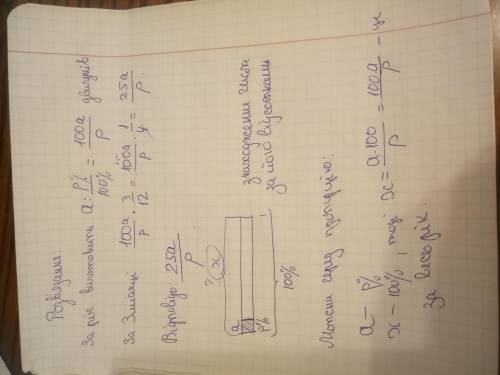 Розв'язання:
За рік виготовить a : P%/100% = 100a/P двигунів
За 3 місяці 100a/P · 3/12 = 100a/P · 1/4 = 25a/P
Відповідь: 25a/P
? (x)
a
P%
100%
знаходження числа
за його відсотками
Можна через пропорцію:
a – P%
x – 100%, тоді x = a·100/P = 100a/P – це
за весь рік.